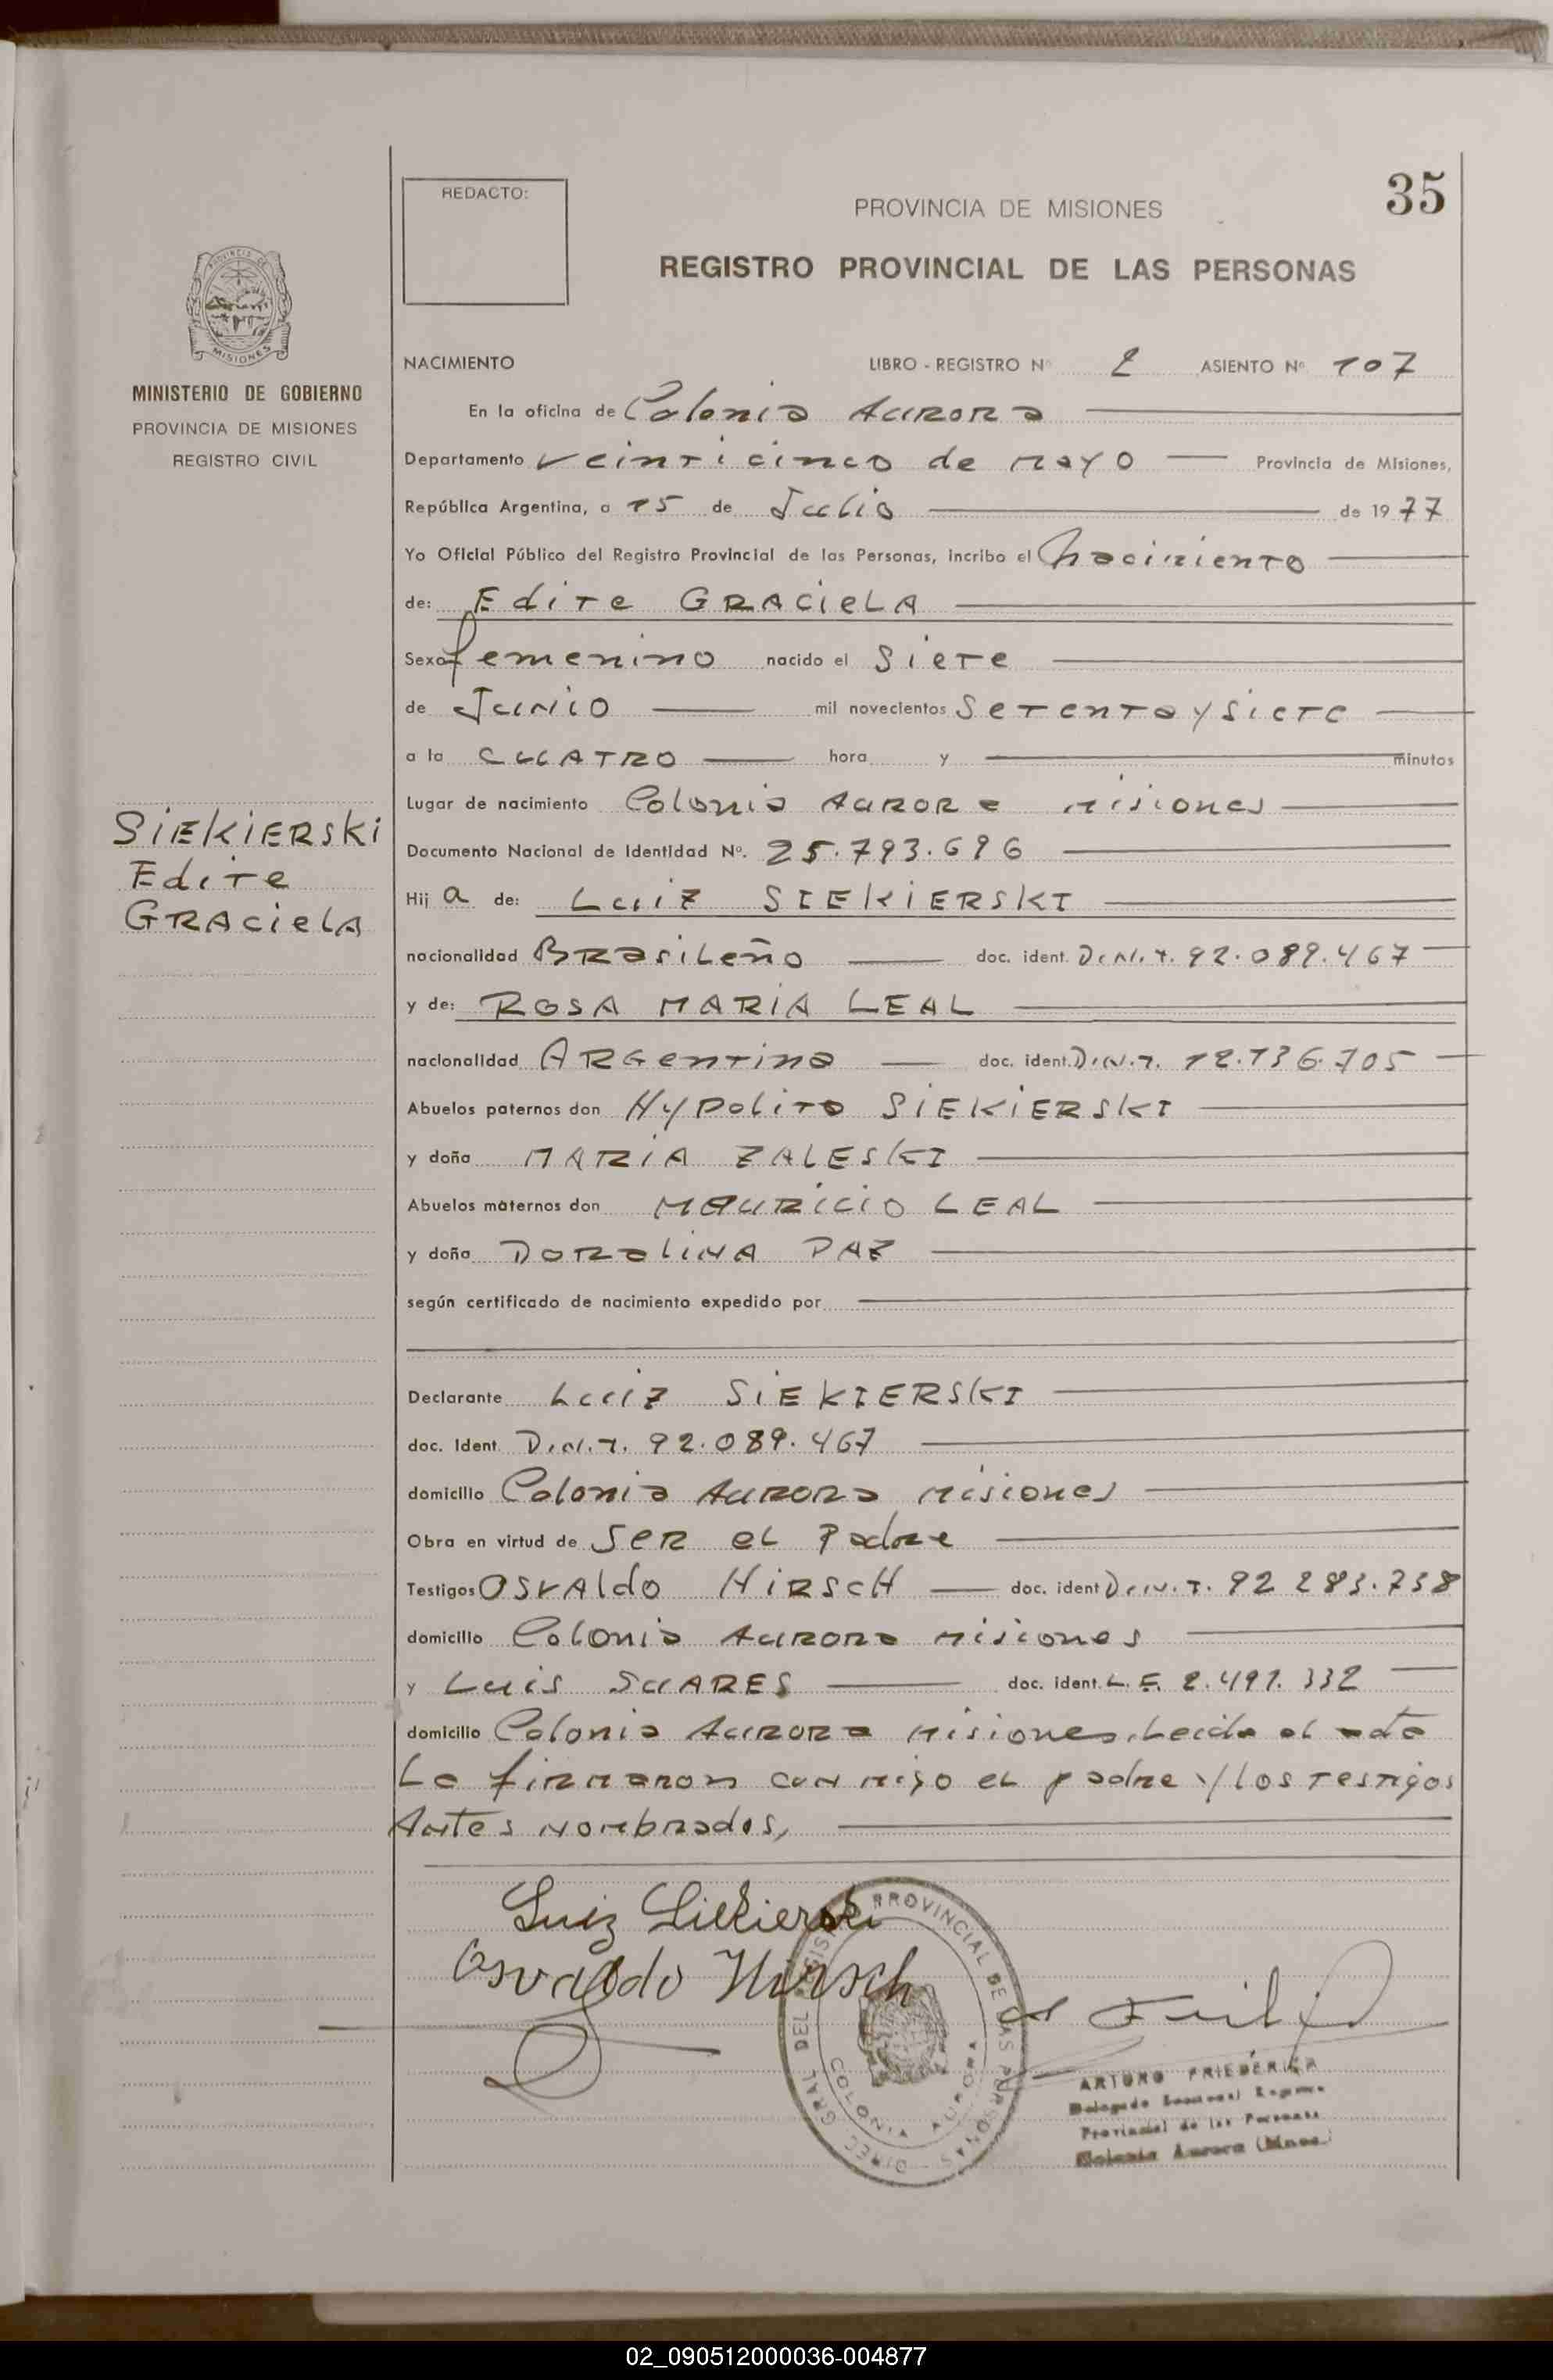 35
REDACTO:
PROVINCIA DE MISIONES
REGISTRO PROVINCIAL DE LAS PERSONAS
PROVINCIA DE
MISIONES
MINISTERIO DE GOBIERNO
PROVINCIA DE MISIONES
REGISTRO CIVIL
NACIMIENTO LIBRO - REGISTRO Nº 2 ASIENTO Nº 107
En la oficina de Colonia Aurora
Departamento veinticinco de mayo Provincia de Misiones,
República Argentina, a 15 de Julio de 1977
Yo Oficial Público del Registro Provincial de las Personas, incribo el nacimiento
de: Edite GRACieLA
Sexo femenino nacido el Siete
de Junio mil novecientos Setenta y Siete
a la CUATRO hora y minutos
Lugar de nacimiento Colonia Aurora misiones
Documento Nacional de Identidad Nº. 25.793.696
SiEKiERSKi
Edite
GRACielA
Hij a de: Luiz SIEKiERSKI
nacionalidad BRasiLeño doc. ident. D.N.I. 92.089.467
y de: ROSA MARIA LEAL
nacionalidad ARGentina doc. ident. D.N.I. 12.136.705
Abuelos paternos don Hypolito SIEKiERSKI
y doña MARIA ZALESKI
Abuelos maternos don MAURICIO LEAL
y doña DORaLiNA PAZ
según certificado de nacimiento expedido por
Declarante Luiz SiEKIERSKI
doc. Ident. D.N.I. 92.089.467
domicilio Colonia Aurora misiones
Obra en virtud de SeR eL Padre
Testigos OSVAldo HiRScH doc. ident D.N.I. 92 283.738
domicilio Colonia Aurora misiones
y Luis SUARES doc. ident. L.E. 2.491.332
domicilio Colonia Aurora misiones, Leida el acta
La firmaron conmigo el padre y los testigos
Antes nombrados,
Luiz Siekierski
Osvaldo Hirsch
DIREC. GRAL DEL REGISTRO PROVINCIAL DE LAS PERSONAS
COLONIA AURORA
ARTURO FRIEDERICH
Delegado Seccional Registro
Provincial de las Personas
Colonia Aurora (Mnes.)
02_090512000036-004877